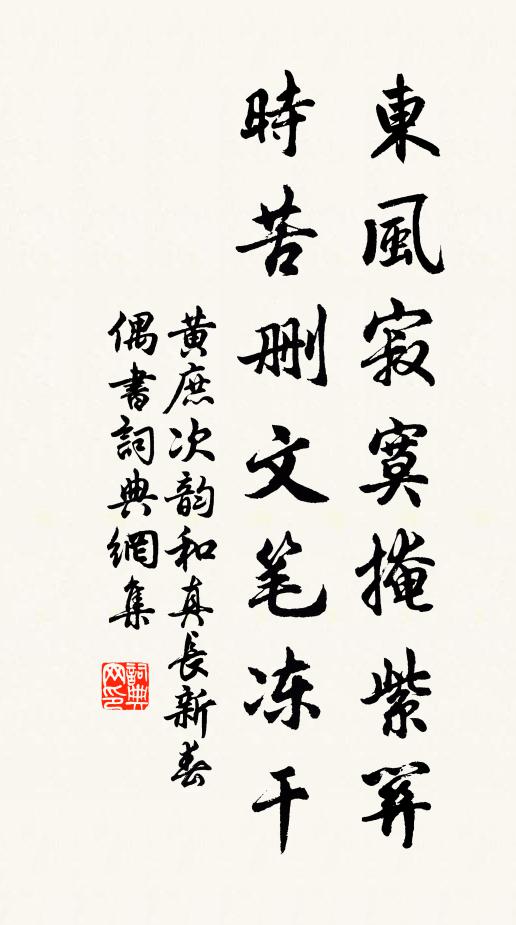 東風寂寞掩紫關
時苦删文笔冻干
黄庶次韵和真長新春
偶書詞典網集
詞典网印